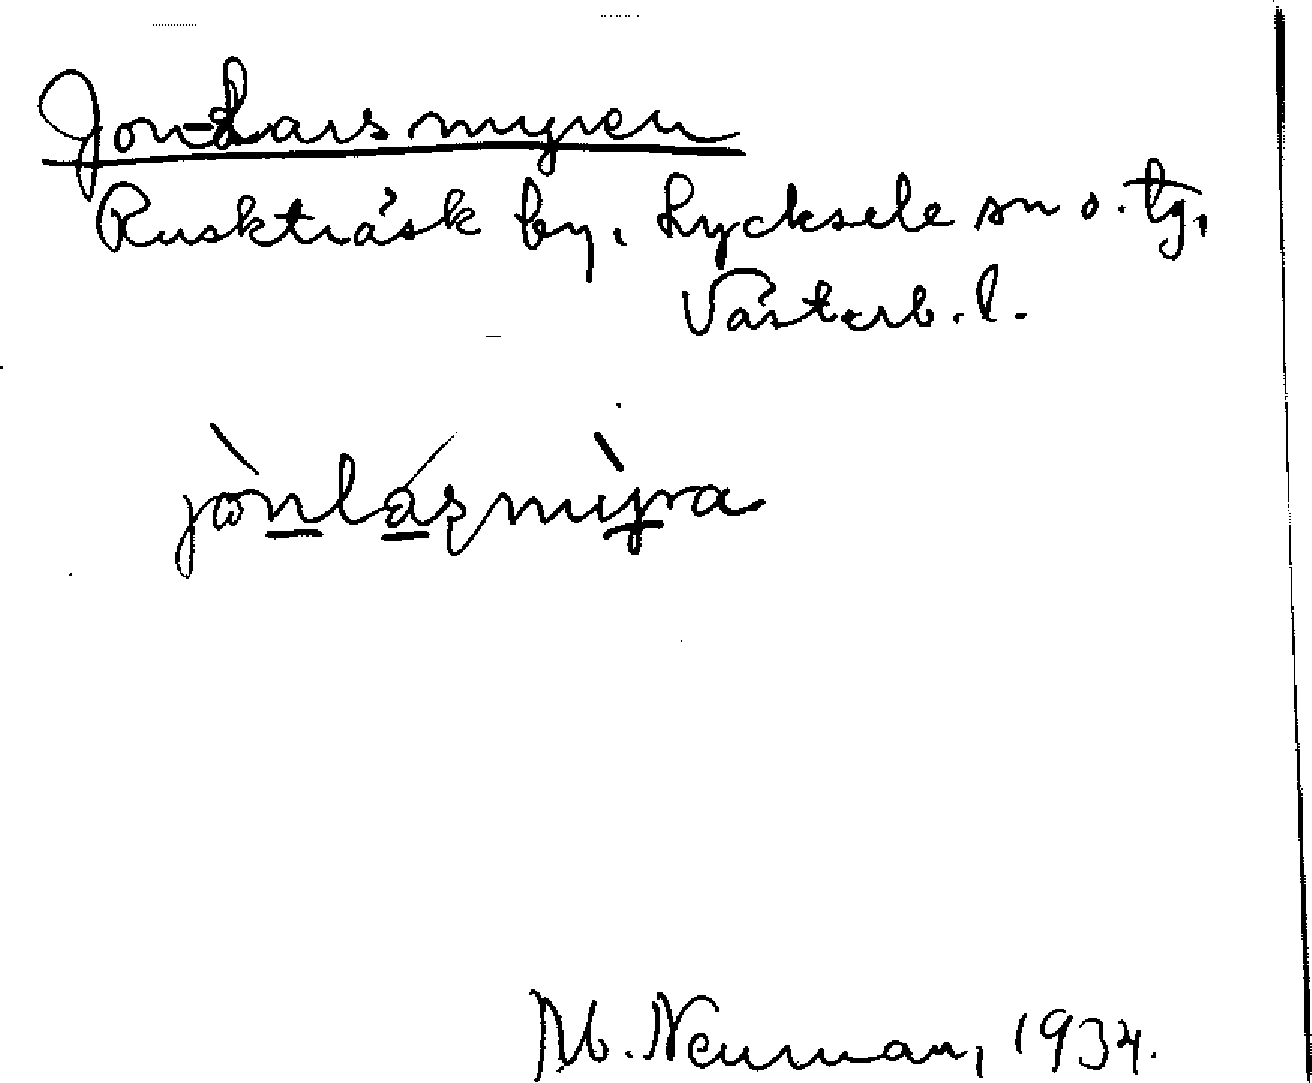 Jon-Larsmyren
Ruskträsk by, Lycksele sn o. tg,
Västerb. l.
jònlásmỳra
Ab. Neuman, 1934.